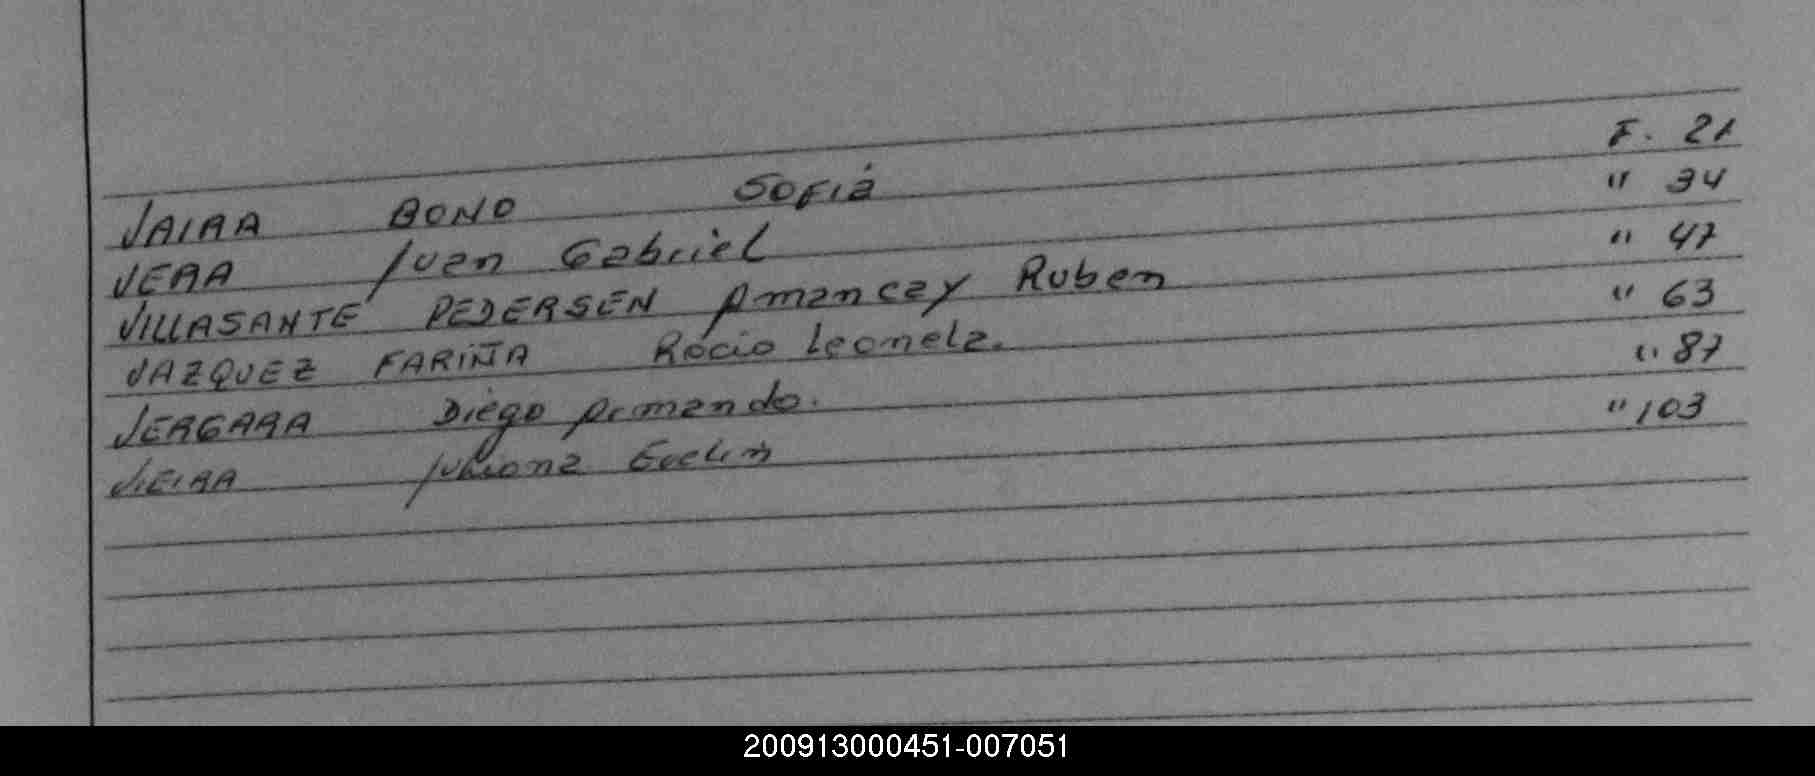 VAIRA BONO Sofia F. 21
VERA Juan Gabriel " 34
VILLASANTE PEDERSEN Amancay Ruben " 47
VAZQUEZ FARIÑA Rocio Leonela. " 63
VERGARA Diego Armando. " 87
VIEIRA Juliana Evelin " 103
200913000451-007051